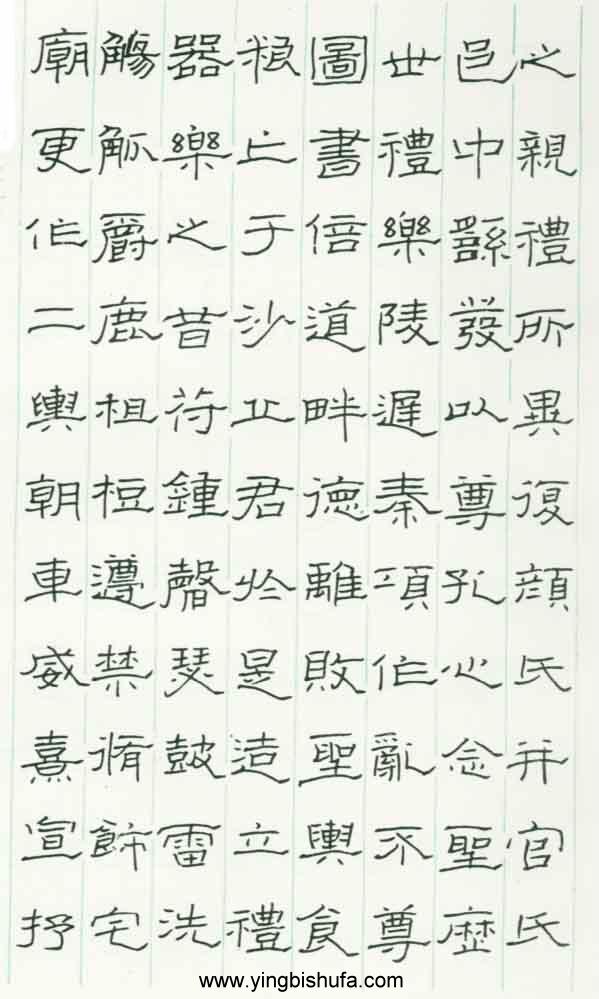 之親禮所異復顏氏并官氏
邑中繇發以尊孔心念聖歷
世禮樂陵遲秦項作亂不尊
圖書倍道畔德離敗聖輿食
糧亡于沙丘君於是造立禮
器樂之昔苻鍾磬瑟鼓雷洗
觴觚爵鹿柤梪籩禁脩飾宅
廟更作二輿朝車威熹宣抒
www.yingbishufa.com